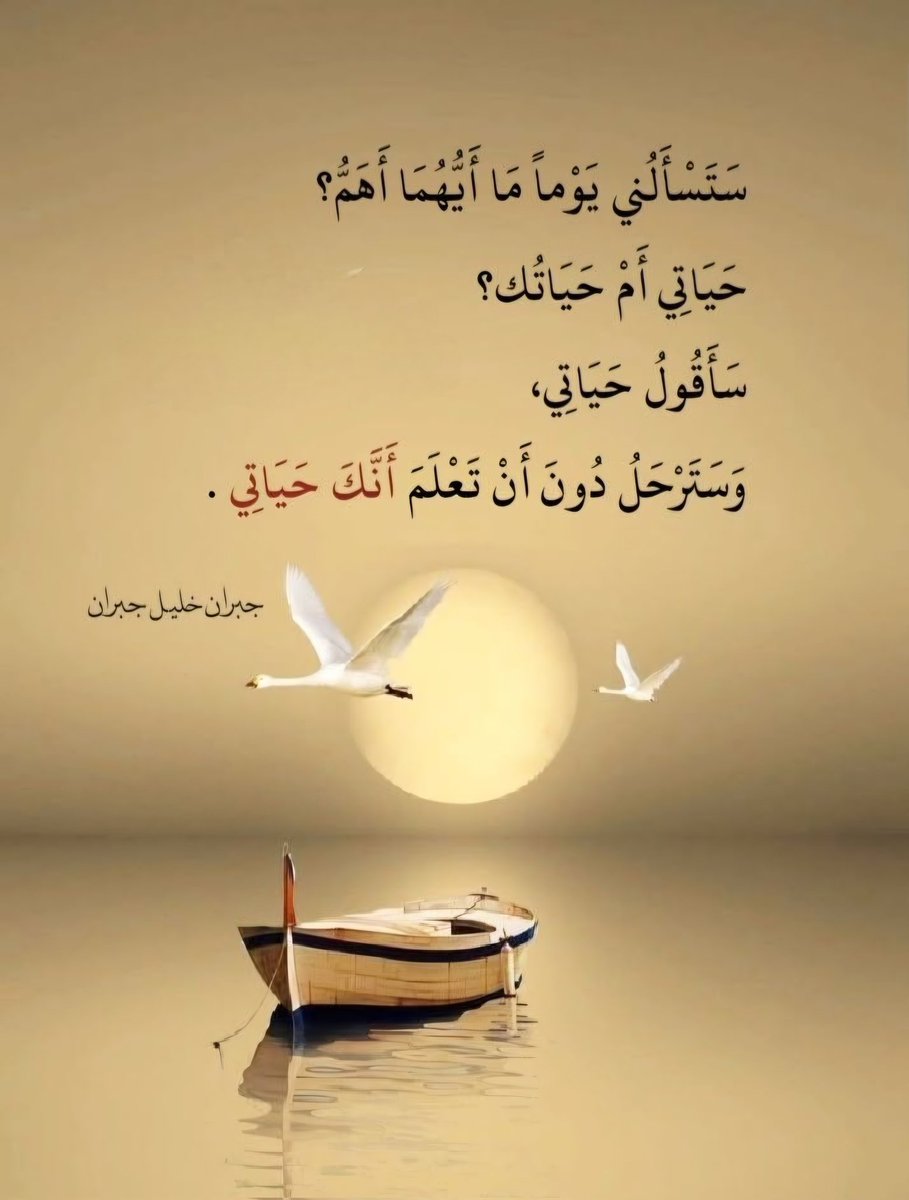 سَتَسْأَلُني يَوْماً مَا أَيُّهُمَا أَهَمُّ؟
حَيَاتِي أَمْ حَيَاتُك؟
سَأَقُولُ حَيَاتِي،
وَسَتَرْحَلُ دُونَ أَنْ تَعْلَمَ أَنَّكَ حَيَاتِي .
جبران خليل جبران